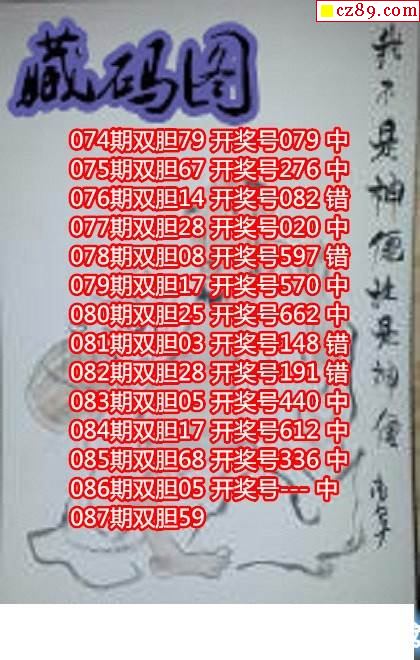 cz89.com
藏码图
074期双胆79 开奖号079 中
075期双胆67 开奖号276 中
076期双胆14 开奖号082 错
077期双胆28 开奖号020 中
078期双胆08 开奖号597 错
079期双胆17 开奖号570 中
080期双胆25 开奖号662 中
081期双胆03 开奖号148 错
082期双胆28 开奖号191 错
083期双胆05 开奖号440 中
084期双胆17 开奖号612 中
085期双胆68 开奖号336 中
086期双胆05 开奖号--- 中
087期双胆59
我不是神便是神